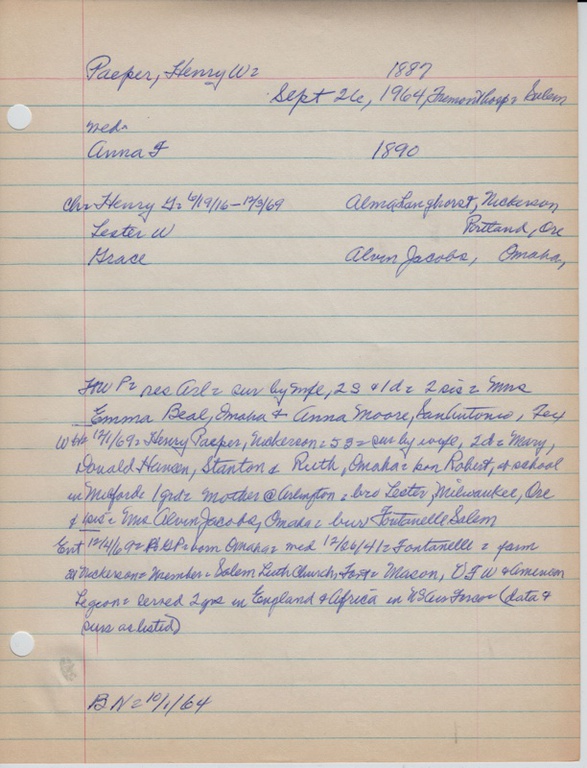 Paeper, Henry W= 1887
Sept 26, 1964, Fremont Hosp= Salem
med=
Anna F 1890
ch= Henry G= 6/19/16-12/3/69 Alma Langhorst, Nickerson
Lester W Portland, Ore
Grace Alvin Jacobs, Omaha,
HWP= res Arl= sur by wife, 2 S & 1 d= 2 sis= Mrs
Emma Beal, Omaha & Anna Moore, San Antonio, Tex
12/1/69= Henry Paeper, Nickerson= 53= sur by wife, 2 d= Mary,
Donald Hansen, Stanton & Ruth, Omaha= son Robert, at school
in Milford= 1 grd= mother @ Arlington= bro Lester, Milwaukee, Ore
& 1 sis= Mrs Alvin Jacobs, Omaha= bur Fontanelle Salem
Ent 12/4/69= born Omaha= med 12/26/41= Fontanelle= farm
at Nickerson= member= Salem Luth Church, Font= Mason, VFW & American
Legion= served 2 yrs in England & Africa in US Air Force= (data &
surs as listed)
B N= 10/1/64